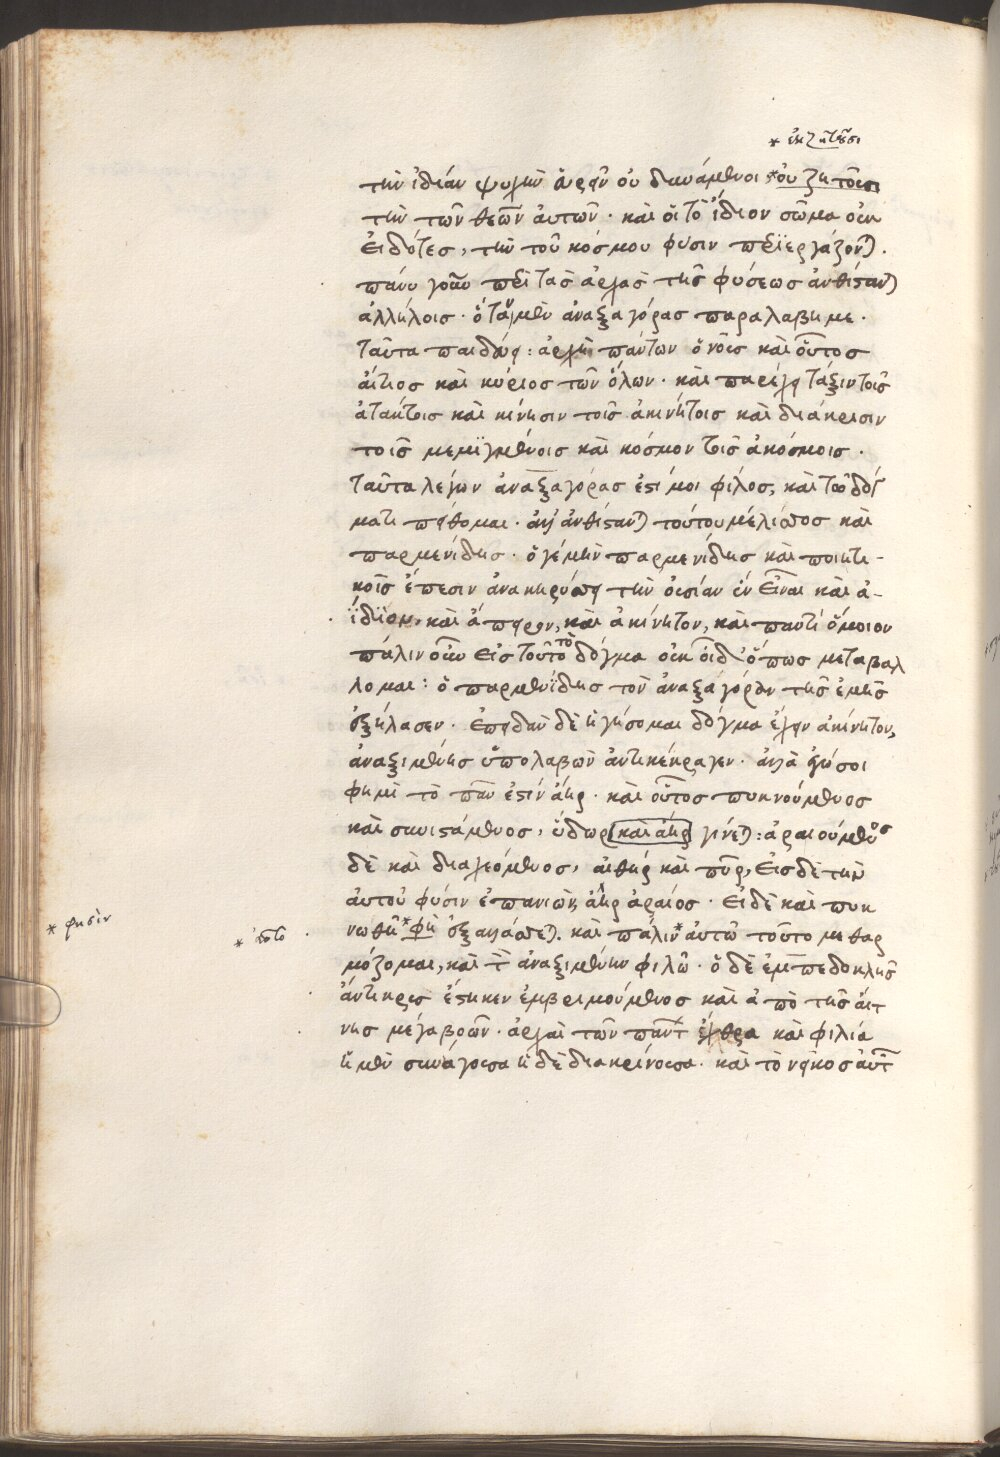 * ἐκζητοῦσι
τὴν ἰδίαν ψυχὴν εὑρεῖν οὐ δυνάμενοι *οὐ ζητοῦσι
τὴν τῶν θεῶν ἀυτῶν · καὶ ὁι τὸ ἴδιον σῶμα οὐκ
ἐιδότες, τὴν τοῦ κόσμου φύσιν περϊεργάζον).
πάνυ γοῦν περὶ τὰς ἀρχὰς τῆς φύσεως ἀνθίσταν)
ἀλλήλοις · ὅταν μὲν ἀναξαγόρας παραλάβη με ·
ταῦτα παιδεύει : ἀρχὴ πάντων ὁ νοῦς καὶ οὗτος
ἄιτιος καὶ κύριος τῶν ὅλων · καὶ παρέχει τάξιν τοῖς
ἀτάκτοις καὶ κίνησιν τοῖς ἀκινήτοις καὶ διάκρισιν
τοῖς μεμιγμένοις καὶ κόσμον τοῖς ἀκόσμοις ·
ταῦτα λέγων ἀναξαγόρας ἐστί μοι φίλος, καὶ τῶ δόγ
ματι πείθομαι · ἀλλ' ἀνθίσταν) τούτου μέλισσος καὶ
παρμενίδης · ὅ γε μὴν παρμενίδης καὶ ποιητι-
κοῖς ἔπεσιν ἀνακηρύσσει τὴν οὐσίαν ἓν εἶναι καὶ ἀ-
ΐδιον, καὶ ἄπειρον, καὶ ἀκίνητον, καὶ παντὶ ὅμοιον
πάλιν οὖν εἰς τοῦτο τὸ δόγμα οὐκ οἶδ' ὅπως μεταβάλ
λομαι : ὁ παρμενίδης τὸν ἀναξαγόραν τῆς ἐμῆς
ἐξήλασεν · ἐπειδὰν δὲ ἡγήσομαι δόγμα ἔχειν ἀκίνητον,
ἀναξιμένης ὑπολαβὼν ἀντικέκραγεν · ἀλλὰ ἐγώ σοι
φημὶ τὸ πᾶν ἐστὶν ἀήρ · καὶ οὗτος πυκνούμενος
καὶ συνιστάμενος, ὕδωρ καὶ ἀὴρ γίνε) : ἀραιούμενος
δὲ καὶ διαχεόμενος, αἰθὴρ καὶ πῦρ, εἰς δὲ τὴν
ἀυτοῦ φύσιν ἐπανιὼν, ἀὴρ ἀραιός · εἰ δὲ καὶ πυκ
νωθῆ *φὴ ἐξαλάσσε). καὶ πάλιν * ἀυτῶ τοῦτο μεθαρ
μόζομαι, καὶ τ̄ ἀναξιμένην φιλῶ · ὁ δὲ ἐμπεδοκλῆς
ἄντικρυς ἕστηκεν ἐμβριμούμενος καὶ ἀπὸ τῆς ἄιτ
νης μέγα βοῶν · ἀρχαὶ τῶν πάντ ἔχθρα καὶ φιλία
ἡ μὲν συνάγουσα ἡ δὲ διακρίνουσα · καὶ τὸ νεῖκος ἀυτ
* φησὶν